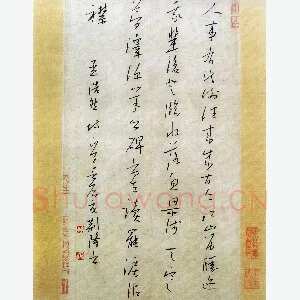 人事有代謝往来成古今江山留勝迹
我輩復登臨水落魚梁淺天寒
夢澤深羊公碑字在讀罷淚沾
襟 孟浩然
Shufawang.CN